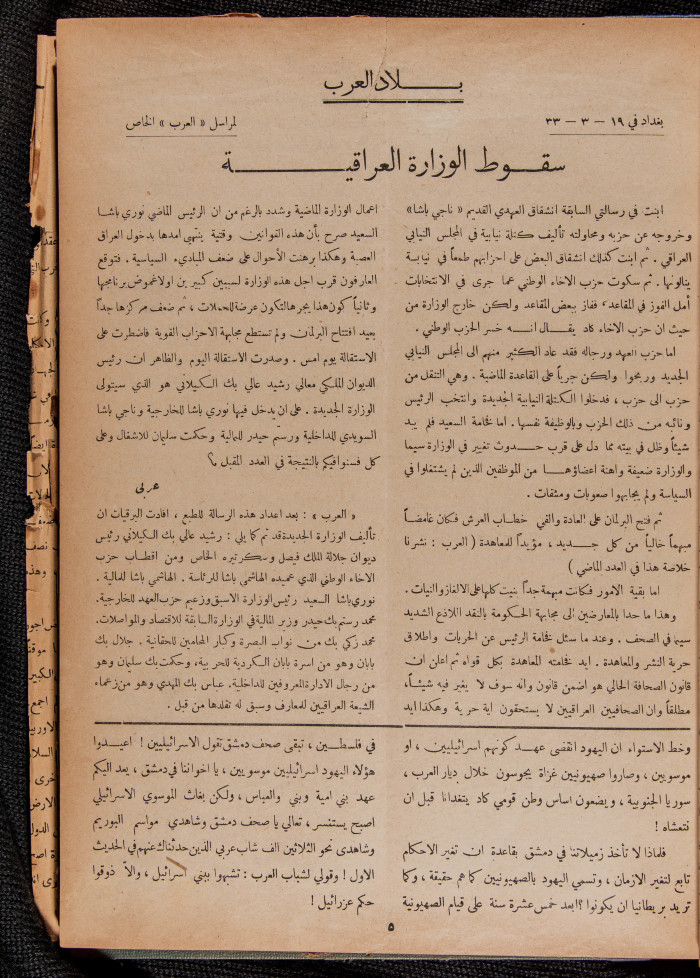 بلاد العرب
بغداد في ١٩ – ٣ – ٣٣
لمراسل « العرب » الخاص
سقوط الوزارة العراقية
ابنت في رسالتي السابقة انشقاق العهدي القديم « ناجي باشا »
وخروجه عن حزبه ومحاولته تأليف كتلة نيابية في المجلس النيابي
العراقي . ثم ابنت كذلك انشقاق البعض على احزابهم طمعاً في نيابة
ينالونها . ثم سكوت حزب الاخاء الوطني عما جرى في الانتخابات
أمل الفوز في المقاعد ففاز ببعض المقاعد ولكن خارج الوزارة من
حيث ان حزب الاخاء كاد يقال انه خسر الحزب الوطني .
اما حزب العهد ورجاله فقد عاد الكثير منهم الى المجلس النيابي
الجديد وربحوا ولكن جرياً على القاعدة الماضية . وهي التنقل من
حزب الى حزب ، فدخلوا الكتلة النيابية الجديدة وانتخب الرئيس
ونائبه من ذلك الحزب وبالوظيفة نفسها . اما فخامة السعيد فلم يبد
شيئاً وظل في بيته مما دل على قرب حدوث تغيير في الوزارة سيما
والوزارة ضعيفة واهنة اعضاؤها من الموظفين الذين لم يشتغلوا في
السياسة ولم يجابهوا صعوبات ومشقات .
ثم فتح البرلمان على العادة والقي خطاب العرش فكان غامضاً
مبهماً خالياً من كل جديد ، مؤيداً للمعاهدة ( العرب : نشرنا
خلاصة هذا في العدد الماضي )
اما بقية الامور فكانت مبهمة جداً بنيت كلها على الالغاز والنيات .
وهذا ما حدا بالمعارضين الى مجابهة الحكومة بالنقد اللاذع الشديد
سيما في الصحف . وعند ما سئل فخامة الرئيس عن الحريات واطلاق
حرية النشر والمعاهدة . ايد فخامته المعاهدة بكل قواه ثم اعلن ان
قانون الصحافة الحالي هو اضمن قانون وانه سوف لا يغير فيه شيئاً ،
مطلقاً وان الصحافيين العراقيين لا يستحقون اية حرية وهكذا ايد
اعمال الوزارة الماضية وشدد بالرغم من ان الرئيس الماضي نوري باشا
السعيد صرح بأن هذه القوانين وقتية ينتهي امدها بدخول العراق
العصبة وهكذا برهنت الأحوال على ضعف المبادىء السياسية . فتوقع
العارفون قرب اجل هذه الوزارة لسببين كبيرين اولا غموض برنامجها
وثانياً كون هذا يجرها لتكون عرضة للحملات ، ثم ضعف مركزها جداً
بعيد افتتاح البرلمان ولم تستطع مجابهة الاحزاب القوية فاضطرت على
الاستقالة يوم امس . وصدرت الاستقالة اليوم والظاهر ان رئيس
الديوان الملكي معالي رشيد عالي بك الكيلاني هو الذي سيتولى
الوزارة الجديدة . على ان يدخل فيها نوري باشا للخارجية وناجي باشا
السويدي للداخلية ورستم حيدر للمالية وحكمت سليمان للاشغال وعلى
كل فسنوافيكم بالنتيجة في العدد المقبل ؟
عربي
« العرب » : بعد اعداد هذه الرسالة للطبع ، افادت البرقيات ان
تأليف الوزارة الجديدة قد تم كما يلي : رشيد عالي بك الكيلاني رئيس
ديوان جلالة الملك فيصل وسكرتيره الخاص ومن اقطاب حزب
الاخاء الوطني الذي عميده الهاشمي باشا للرئاسة . الهاشمي باشا للمالية .
نوري باشا السعيد رئيس الوزارة الاسبق وزعيم حزب العهد للخارجية .
محمد رستم بك حيدر وزير المالية في الوزارة السابقة للاقتصاد والمواصلات .
محمد زكي بك من نواب البصرة وكبار المحامين للحقانية . جلال بك
بابان وهو من اسرة بابان الكردية للحربية ، وحكمت بك سليمان وهو
من رجال الادارة المعروفين للداخلية . عباس بك المهدي وهو من زعماء
الشيعة العراقيين للمعارف وسبق له تقلدها من قبل .
وخط الاستواء ان اليهود انقضى عهد كونهم اسرائيليين ، او
موسويين ، وصاروا صهيونيين غزاة يجوسون خلال ديار العرب ،
سوريا الجنوبية ، ويضعون اساس وطن قومي كاد يتغدانا قبل ان
نتعشاه !
فلماذا لا تأخذ زميلاتنا في دمشق بقاعدة ان تغير الاحكام
تابع لتغير الازمان ، وتسمي اليهود بالصهيونيين كما هم حقيقة ، وكما
تريد بريطانيا ان يكونوا ؟ ابعد خمس عشرة سنة على قيام الصهيونية
في فلسطين ، تبقى صحف دمشق تقول الاسرائيليين ! اعيدوا
هؤلاء اليهود اسرائيليين موسويين ، يا اخواننا في دمشق ، يعد اليكم
عهد بني امية وبني والعباس ، ولكن بغاث الموسوي الاسرائيلي
اصبح يستنسر ، تعالي يا صحف دمشق وشاهدي مواسم البوريم
وشاهدي نحو الثلاثين الف شاب عربي الذين حدثناك عنهم في الحديث
الاول ! وقولي لشباب العرب : تشبهوا ببني اسرائيل ، والا ذوقوا
حكم عزرائيل !
٥